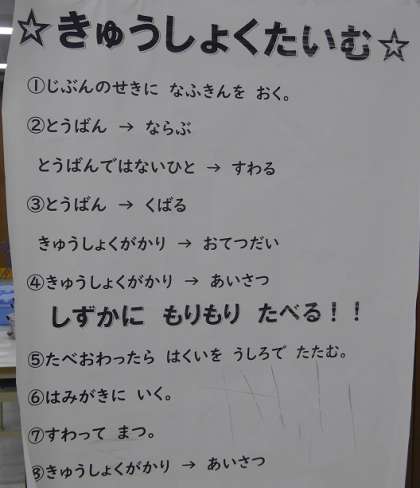 ☆きゅうしょくたいむ☆
①じぶんのせきに なふきんを おく。
②とうばん → ならぶ
とうばんではないひと → すわる
③とうばん → くばる
きゅうしょくがかり → おてつだい
④きゅうしょくがかり → あいさつ
しずかに もりもり たべる！！
⑤たべおわったら はくいを うしろで たたむ。
⑥はみがきに いく。
⑦すわって まつ。
⑧きゅうしょくがかり → あいさつ